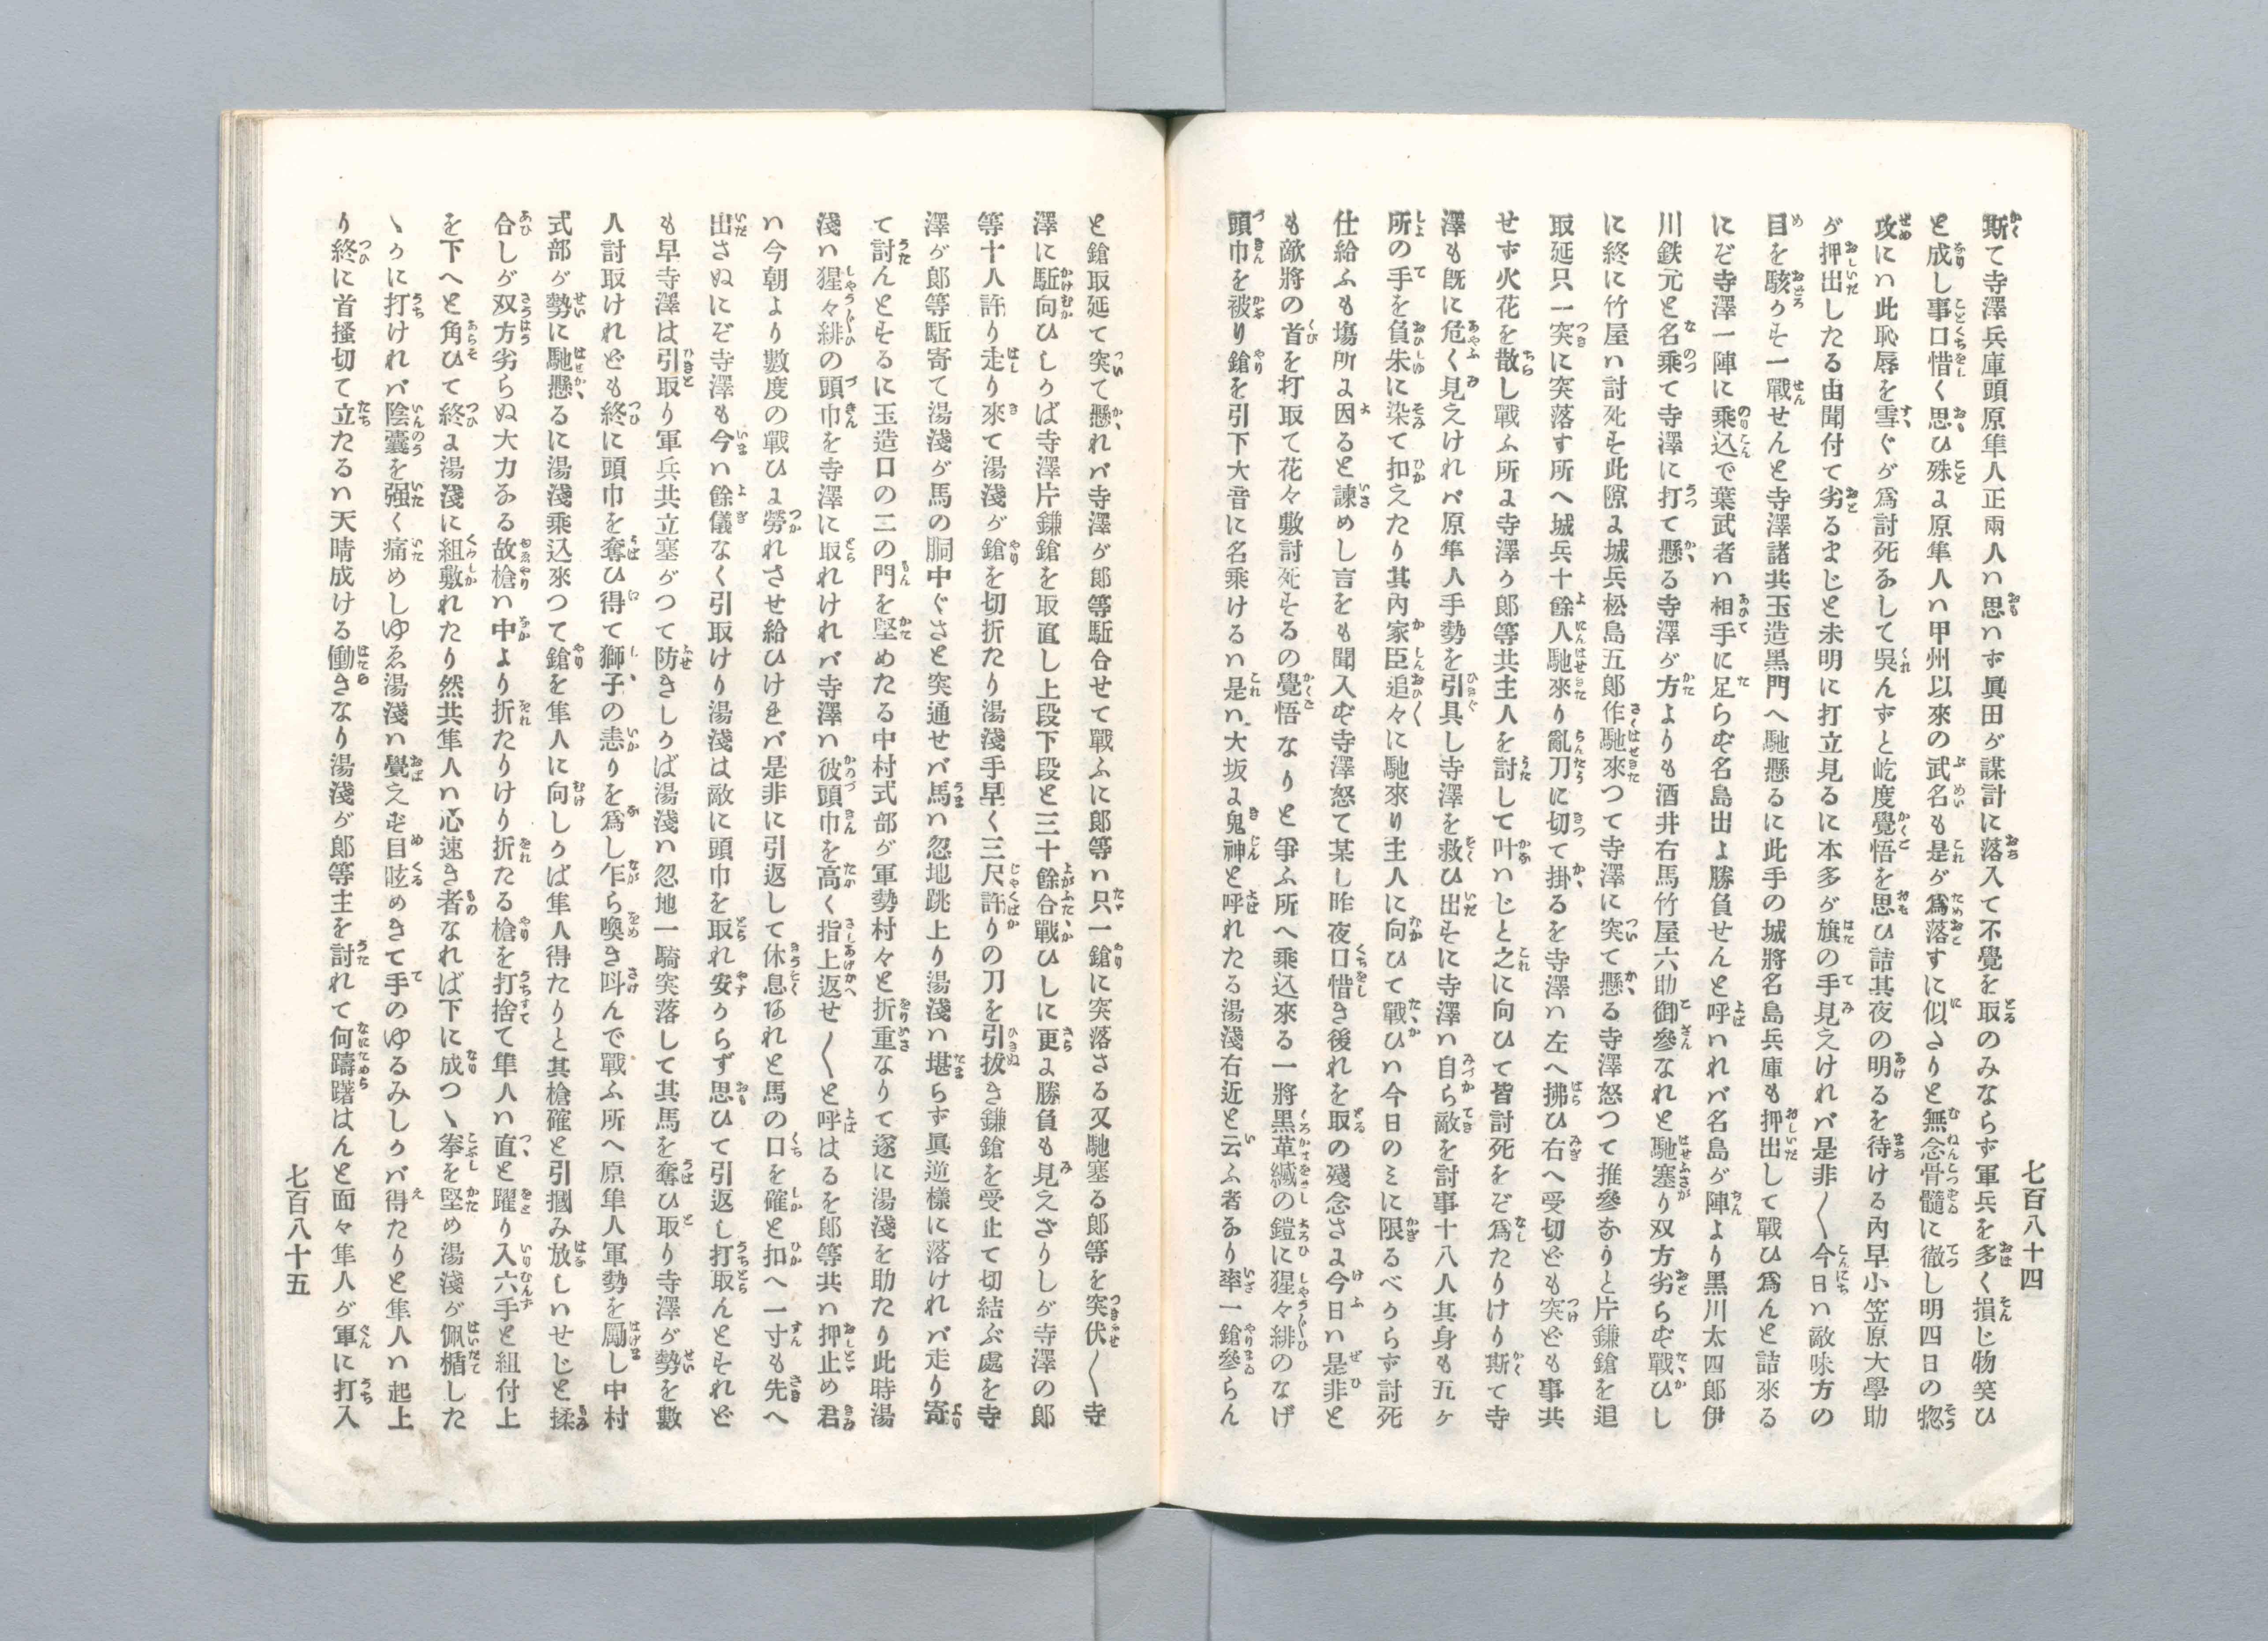 七百八十四
斯て寺澤兵庫頭原隼人正兩人ハ思ハず眞田が謀計に落入て不覺を取のみならず軍兵を多く損じ物笑ひ
と成し事口惜く思ひ殊に原隼人ハ甲州以來の武名も是が爲落すに似たりと無念骨髓に徹し明四日の惣
攻にハ此恥辱を雪ぐが爲討死なして呉んずと屹度覺悟を思ひ詰其夜の明るを待ける內早小笠原大學助
が押出したる由聞付て劣るまじと未明に打立見るに本多が旗の手見えけれバ是非〱今日ハ敵味方の
目を駭かそ一戰せんと寺澤諸共玉造黑門へ馳懸るに此手の城將名島兵庫も押出して戰ひ爲んと詰來る
にぞ寺澤一陣に乘込で葉武者ハ相手に足らず名島出よ勝負せんと呼ハれバ名島が陣より黑川太四郎伊
川鉄元と名乘て寺澤に打て懸る寺澤が方よりも酒井右馬竹屋六助御參なれと馳塞り双方劣らず戰ひし
に終に竹屋ハ討死す此隙に城兵松島五郎作馳來つて寺澤に突て懸る寺澤怒つて推參なりと片鎌鎗を追
取延只一突に突落す所へ城兵十餘人馳來り亂刀に切て掛るを寺澤ハ左へ拂ひ右へ受切ども突ども事共
せず火花を散し戰ふ所に寺澤が郎等共主人を討して叶ハじと之に向ひて皆討死をぞ爲たりけり斯て寺
澤も既に危く見えけれバ原隼人手勢を引具し寺澤を救ひ出すに寺澤ハ自ら敵を討事十八人其身も五ヶ
所の手を負朱に染て扣えたり其內家臣追々に馳來り主人に向ひて戰ひハ今日のミに限るべからず討死
仕給ふも塲所に因ると諫めし言をも聞入ず寺澤怒て某し昨夜口惜き後れを取の殘念さに今日ハ是非と
も敵將の首を打取て花々敷討死するの覺悟なりと爭ふ所へ乘込來る一將黑革縅の鎧に猩々緋のなげ
頭巾を被り鎗を引下大音に名乘けるハ是ハ大坂に鬼神と呼れたる湯淺右近と云ふ者あり率一鎗參らん
と鎗取延て突て懸れバ寺澤が郎等駈合せて戰ふに郎等ハ只一鎗に突落さる又馳塞る郎等を突伏〱寺
澤に駈向ひしかば寺澤片鎌鎗を取直し上段下段と三十餘合戰ひしに更に勝負も見えざりしが寺澤の郎
等十人許り走り來て湯淺が鎗を切折たり湯淺手早く三尺許りの刀を引拔き鎌鎗を受止て切結ぶ處を寺
澤が郎等駈寄て湯淺が馬の胴中ぐさと突通せバ馬ハ忽地跳上り湯淺ハ堪らず眞逆樣に落けれバ走り寄
て討んとするに玉造口の二の門を堅めたる中村式部が軍勢村々と折重なりて遂に湯淺を助たり此時湯
淺ハ猩々緋の頭巾を寺澤に取れけれバ寺澤ハ彼頭巾を高く指上返せ〱と呼はるを郎等共ハ押止め君
ハ今朝より數度の戰ひに勞れさせ給ひけれバ是非に引返して休息なれと馬の口を確と扣へ一寸も先へ
出さぬにぞ寺澤も今ハ餘儀なく引取けり湯淺は敵に頭巾を取れ安からず思ひて引返し打取んとすれど
も早寺澤は引取り軍兵共立塞がつて防きしかば湯淺ハ忽地一騎突落して其馬を奪ひ取り寺澤が勢を數
人討取けれども終に頭巾を奪ひ得て獅子の恚りを爲し乍ら喚き叫んで戰ふ所へ原隼人軍勢を勵し中村
式部が勢に馳懸るに湯淺乘込來つて鎗を隼人に向しかば隼人得たりと其槍確と引摑み放しハせじと揉
合しが双方劣らぬ大力なる故槍ハ中より折たりけり折たる槍を打捨て隼人ハ直と躍り入六手と組付上
を下へと角ひて終に湯淺に組敷れたり然共隼人ハ心速き者なれば下に成つゝ拳を堅め湯淺が佩楯した
ゝかに打けれバ陰囊を强く痛めしゆゑ湯淺ハ覺えず目眩めきて手のゆるみしかバ得たりと隼人ハ起上
り終に首搔切て立たるハ天晴成ける働きなり湯淺が郎等主を討れて何躊躇はんと面々隼人が軍に打入
七百八十五